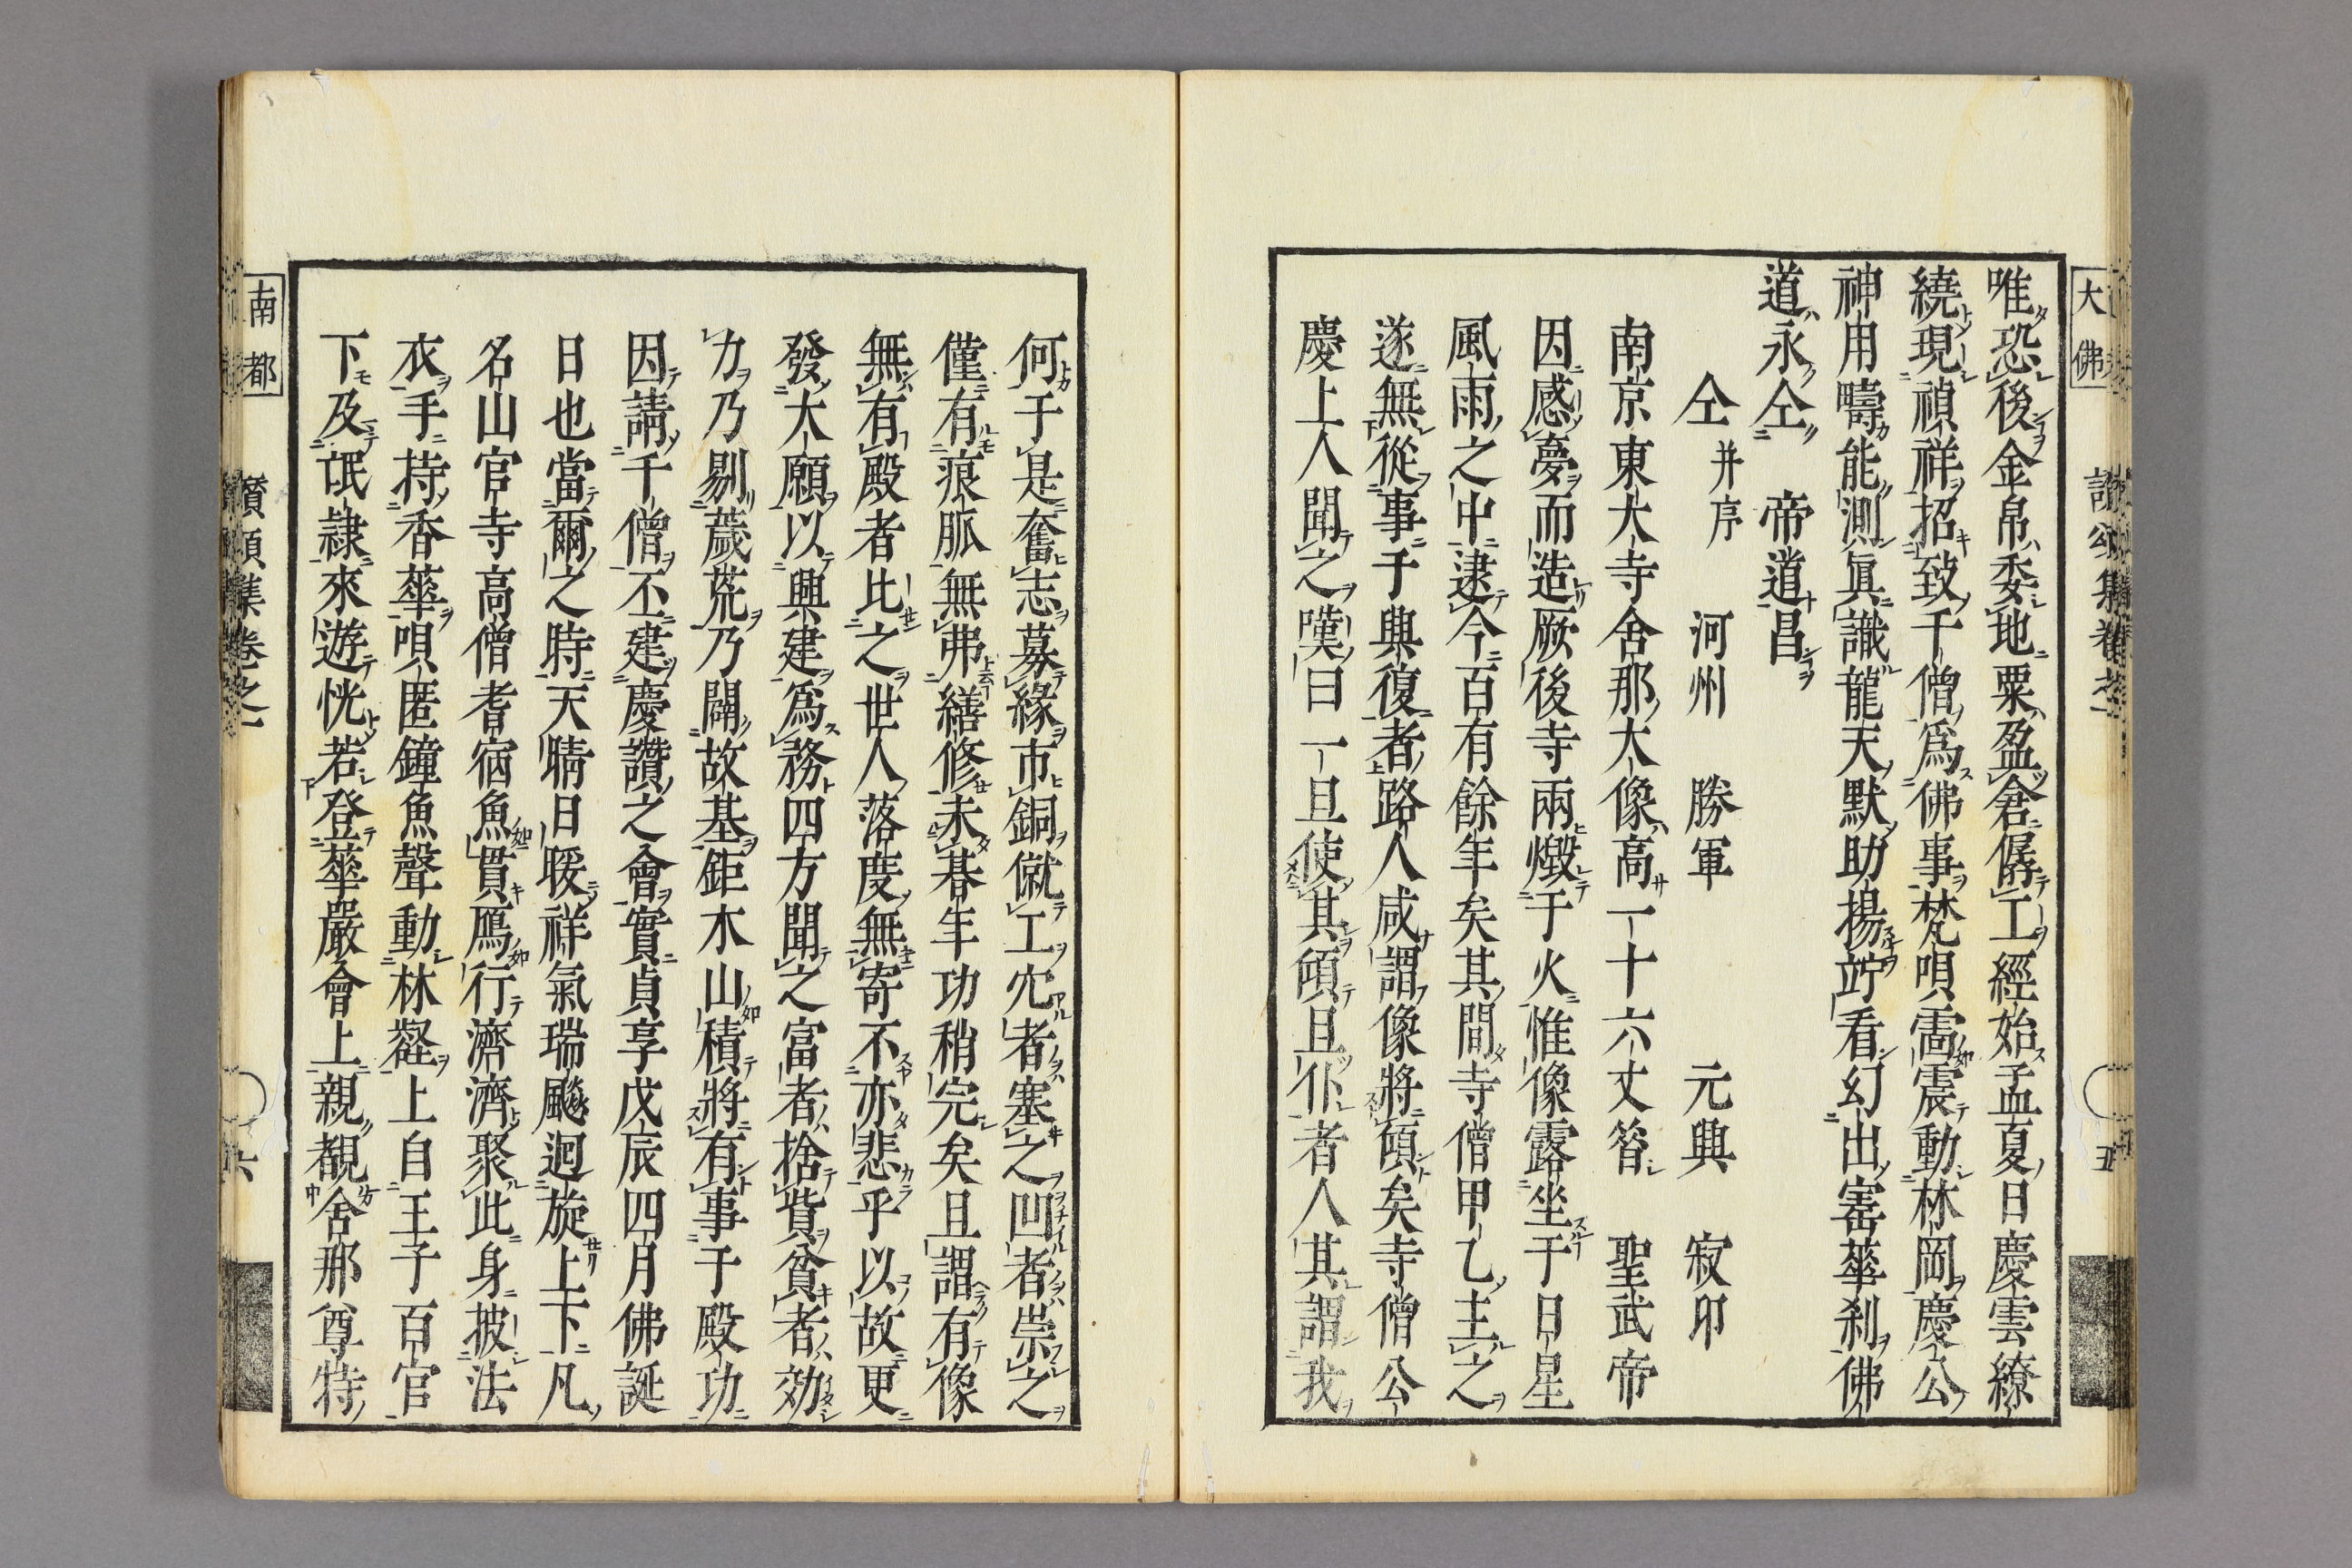 大佛
五
唯恐後金帛委地粟盈倉僝工經始孟夏日慶雲繚
繞現禎祥招致千僧為佛事梵唄霱震動林岡慶公
神用疇能測眞識龍天默助揚竚看幻出寳華刹佛
道永仝帝道昌
仝并序 河州 勝軍 元興 寂卯
南京東大寺舍那大像高一十六丈昝聖武帝
因感夢而造厥後寺兩燬于火惟像露坐于日星
風雨之中逮今百有餘年矣其間寺僧甲乙主之
遂無從事于興復者路人咸謂像將頎矣寺僧公
慶上人聞之嘆曰一旦使其頎且仆者人其謂我
何于是奮志募緣市銅僦工穴者塞之凹者崇之
僅有痕胍無弗繕修未朞年功稍完矣且謂有像
無有殿者比之世人落度無寄不亦悲乎以故更
發大願以興建為務四方聞之富者捨貲貧者効
力乃剔薉荒乃闢故基鉅木山積將有事于殿功
因請千僧丕建慶讚之會實貞享戊辰四月佛誕
日也當爾之時天晴日暖祥氣瑞飈迴旋上下凡
名山官寺高僧耆宿魚貫鴈行濟濟聚此身披法
衣手持香華唄匿鐘魚聲動林壑上自王子百官
下及氓隷來遊恍若登華嚴會上親覩舍那尊特
南都
讃頌集卷之一
六